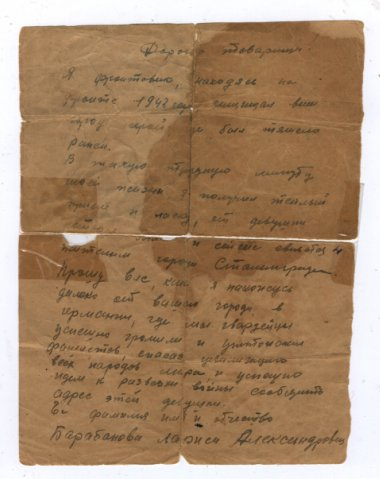 Дорогие товарищи
Я фронтовик, находясь на
фронте 1942 года защищал ваш
город и был тяжело
ранен.
В такую трудную минуту
моей жизни, я получил теплый
прием и ласку, от девушки
и сейчас
города Сталинграда
Прошу вас как я нахожусь
далеко от вашего города в
германии, где мы гвардейцы
успешно громили и уничтожали
фашистов, спасая цивилизацию
всех народов мира и успешно
идем к развязки войны сообщить
адрес этой девушки.
Её фамилия имя и отчество
Барабанова Лариса Александровна